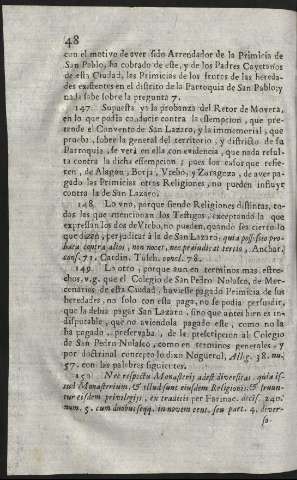 48
con el motivo de aver sido Arrendador de la Primicia de
San Pablo, ha cobrado de este, y de los Padres Cayetanos
de esta Ciudad, las Primicias de los frutos de las hereda-
des existentes en el distrito de la Parroquia de San Pablo; y
nada sabe sobre la pregunta 7.
147. Supuesta ya la probanza del Retor de Movera,
en lo que podia conducir contra la essempcion, que pre-
tende el Convento de San Lazaro, y la immemorial, que
prueba, sobre la general del territorio, y distrito de su
Parroquia, se verà en ella con evidencia, que nada resul-
ta contra la dicha essempcion; pues los casos que refie-
ren, de Alagon, Borja, Vtebo, y Zaragoza, de aver pa-
gado las Primicias otras Religiones, no pueden influyr
contra la de San Lazaro.
148. Lo vno, porque siendo Religiones distintas, to-
das las que mencionan los Testigos, exceptando la que
expressan los dos de Vtebo, no pueden, quando sea cierto lo
que dizen, perjudicar à la de San Lazaro, quia possessio pro-
bata contra alios, non nocet, nec prejudicat tertio, Anchar.
cons. 73. Cardin. Tusch. concl. 78.
149. Lo otro, porque aun en terminos mas estre-
chos, v.g. que el Colegio de San Pedro Nolasco, de Mer-
cenarios de esta Ciudad, huviesse pagado Primicia de sus
heredades, no solo con esta paga, no se podia persuadir,
que la debia pagar San Lazaro, sino que antes bien es in-
disputable, que no viniendola pagado este, como no la
ha pagado, preservaba, de la prescripcion al Colegio
de San Pedro Nolasco, como en terminos generales, y
por doctrinal concepto lo dixo Noguerol, Alleg. 38. nu.
57. con las palabras siguientes.
150. Nec respectu Monasterij adest diversitas, quia is-
tud Monasterium, & illud sunt eiusdem Religionis, & fruun-
tur eisdem privilegijs, ex traditis per Farinac. decis. 240.
num. 5. cum duobus seqq. in novem cent. seu part. 4. diver-
so